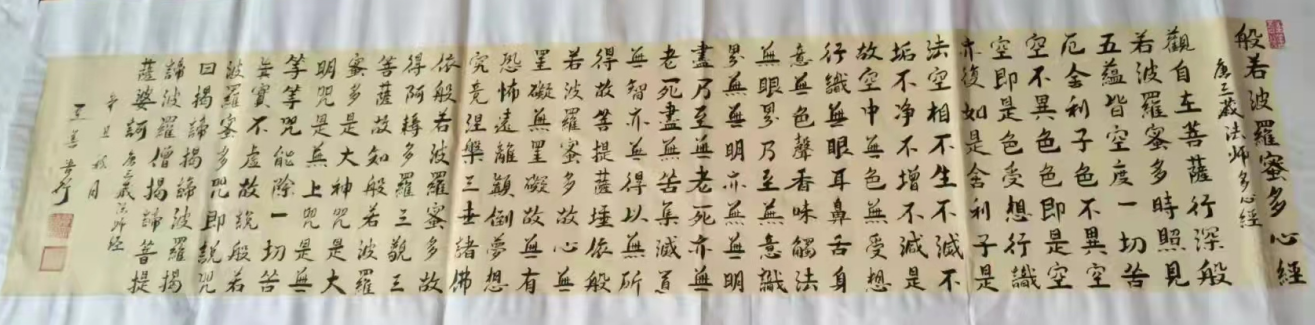 般若波羅蜜多心經
唐三藏法師多心經
觀自在菩薩行深般
若波羅蜜多時照見
五蘊皆空度一切苦
厄舍利子色不異空
空不異色色即是空
空即是色受想行識
亦復如是舍利子是
法空相不生不滅不
垢不净不增不減是
故空中無色無受想
行識無眼耳鼻舌身
意無色聲香味觸法
無眼界乃至無意識
界無無明亦無無明
盡乃至無老死亦無
老死盡無苦集滅道
無智亦無得以無所
得故菩提薩埵依般
若波羅蜜多故心無
罣礙無罣礙故無有
恐怖遠離顛倒夢想
究竟涅槃三世諸佛
依般若波羅蜜多故
得阿耨多羅三藐三
菩薩故知般若波羅
蜜多是大神咒是大
明咒是無上咒是無
等等咒能除一切苦
實不虛故說般若
波羅蜜多咒即說咒
曰揭諦揭諦波羅揭
諦波羅僧揭諦菩提
薩婆訶 唐三藏法師經
辛丑秋月
王善